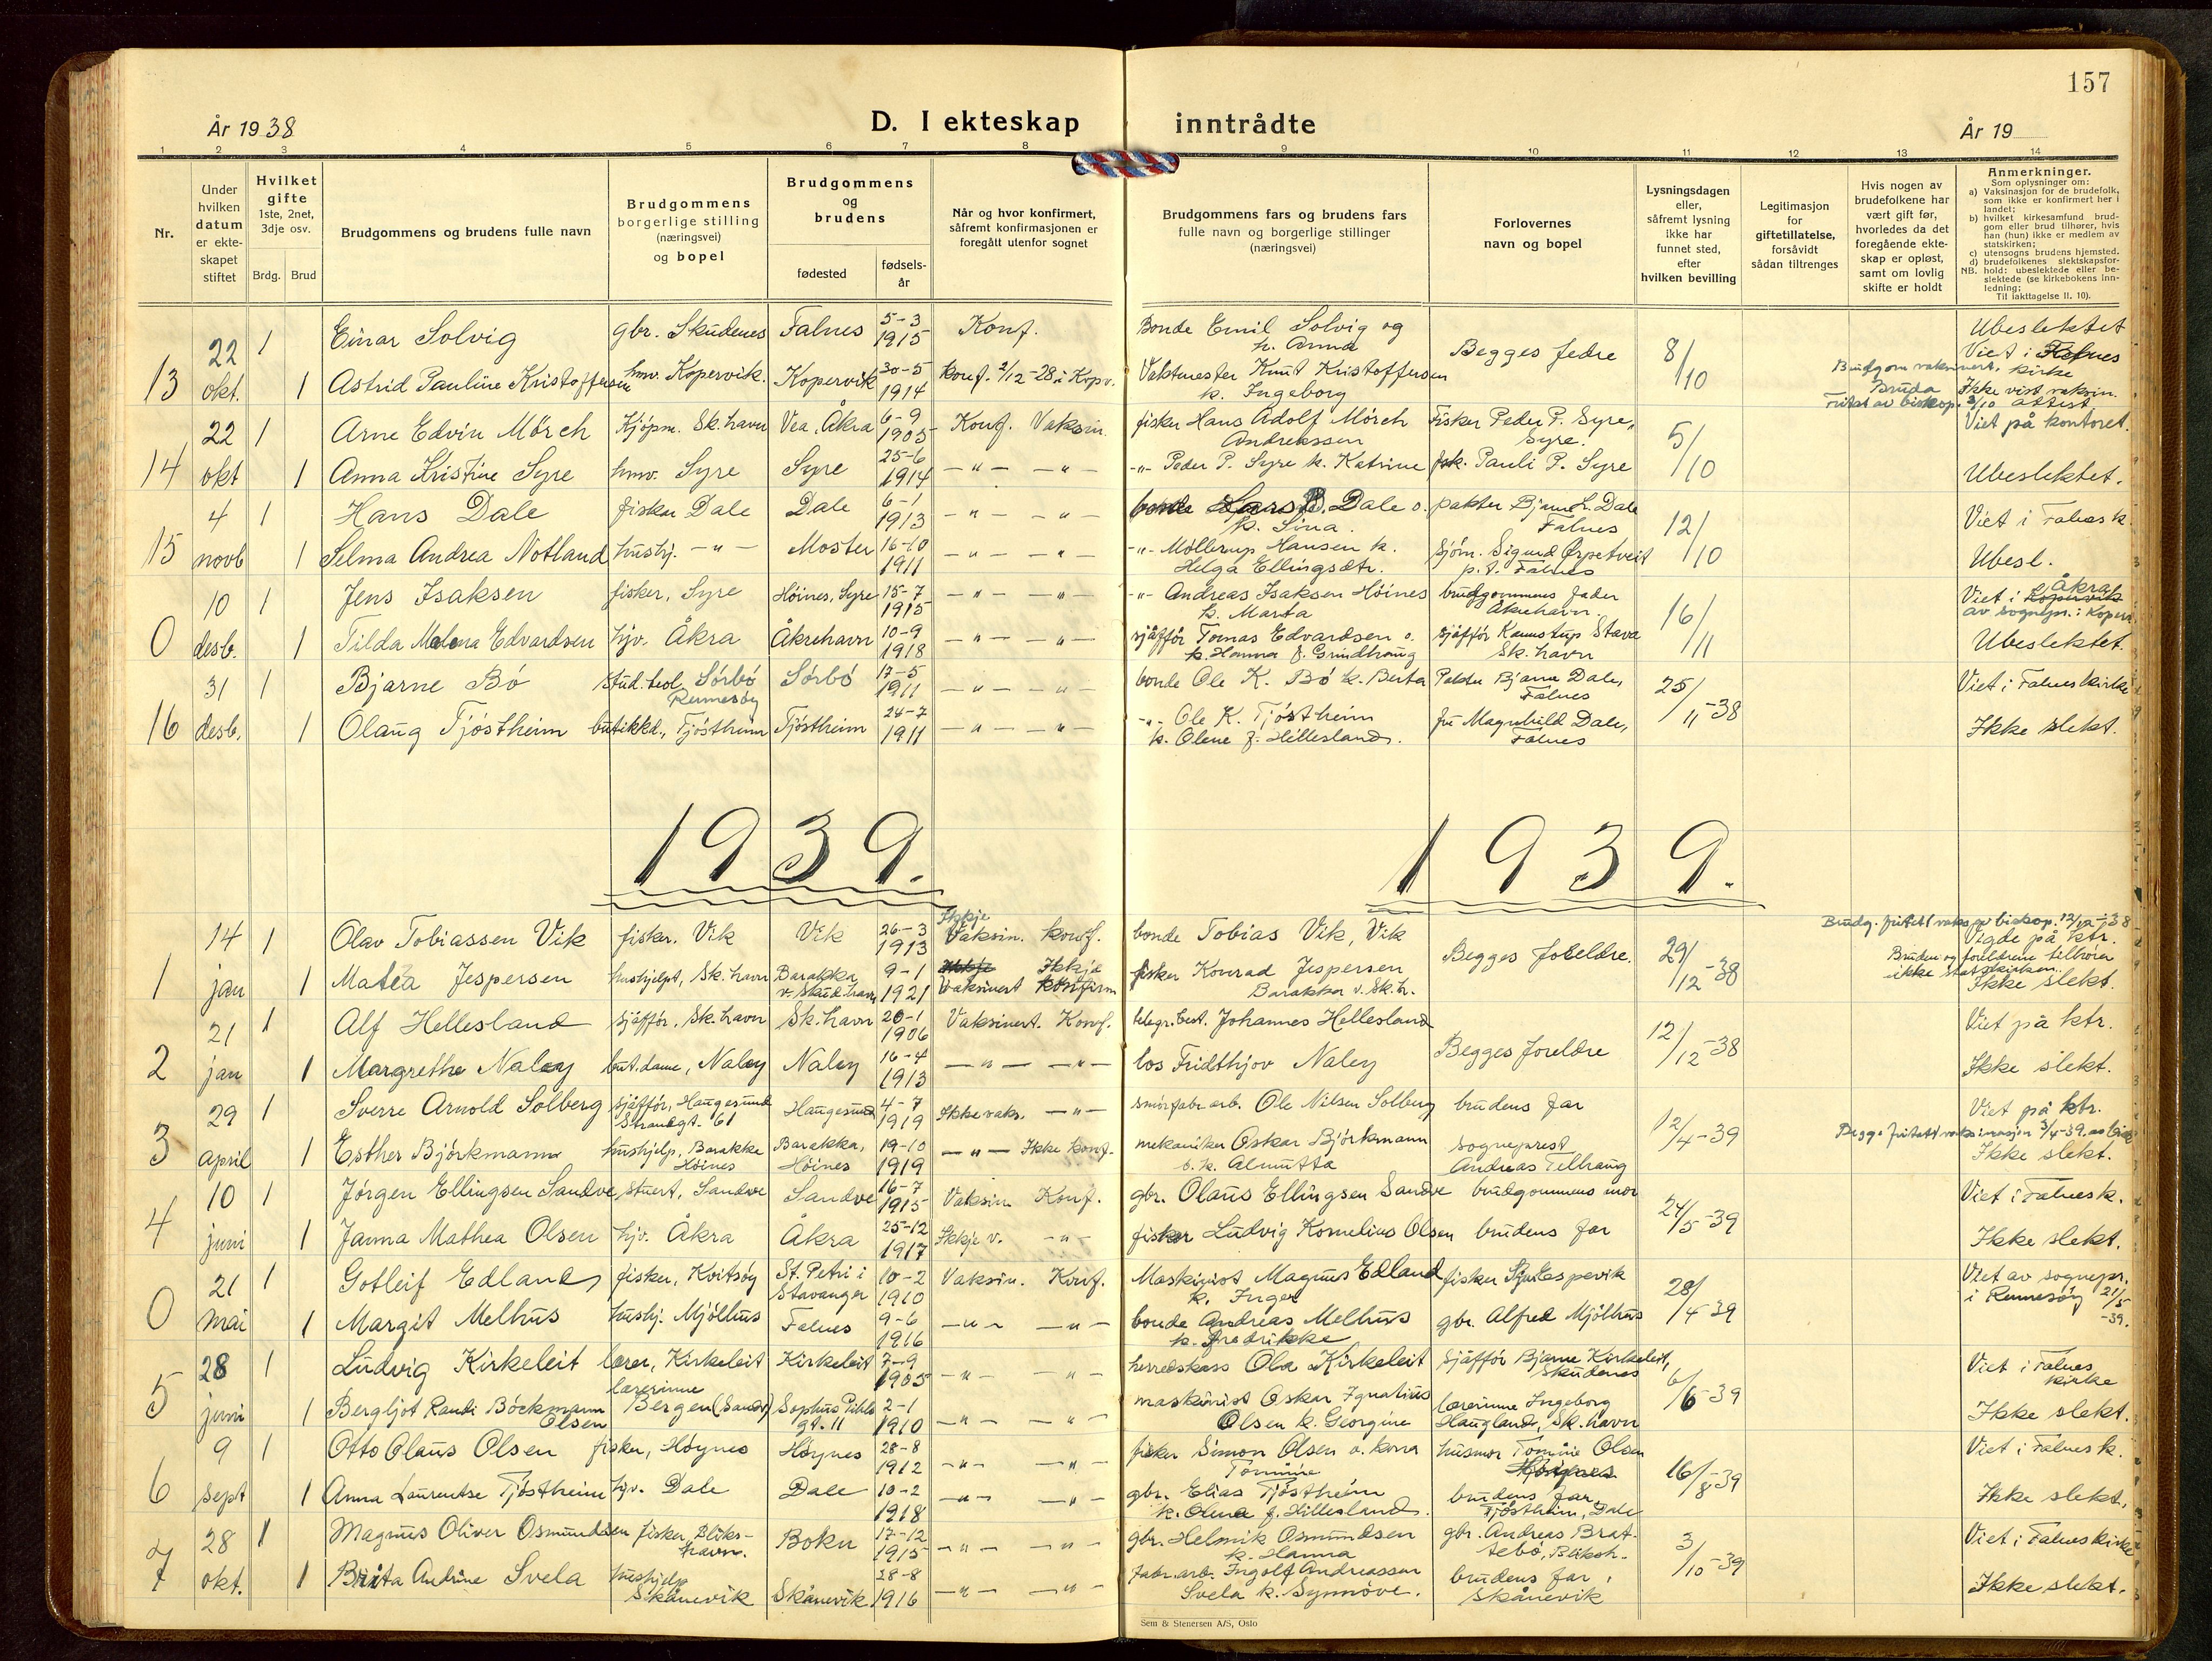 157
År 1938
D. I ekteskap inntrådte
År 19
1 2 3 4 5 6 7 8 9 10 11 12 13 14
Nr.
Under hvilken datum er ekte-skapet stiftet
Hvilket gifte 1ste, 2net, 3dje osv.
Brdg. Brud
Brudgommens og brudens fulle navn
Brudgommens borgerlige stilling (næringsvei) og bopel
Brudgommens og brudens
fødested
fødsels-år
Når og hvor konfirmert, såfremt konfirmasjonen er foregått utenfor sognet
Brudgommens fars og brudens fars fulle navn og borgerlige stillinger (næringsvei)
Forlovernes navn og bopel
Lysningsdagen eller, såfremt lysning ikke har funnet sted, efter hvilken bevilling
Legitimasjon for giftetillatelse, forsåvidt sådan tiltrenges
Hvis nogen av brudefolkene har vært gift før, hvorledes da det foregående ekte-skap er opløst, samt om lovlig skifte er holdt
Anmerkninger.
Som oplysninger om:
a) Vaksinasjon for de brudefolk, som ikke er konfirmert her i landet;
b) hvilket kirkesamfund brud-gom eller brud tilhører, hvis han (hun) ikke er medlem av statskirken;
c) utensogns brudens hjemsted.
d) brudefolkenes slektskapsfor-
NB. hold: ubeslektede eller be-slektede (se kirkebokens inn-ledning;
Til iakttagelse II. 10).
22 1 Einar Solvig gbr. Skudenes Falnes 5-3 1915 Konf. Bonde Emil Solvig og k. Anna Begges fedre 8/10 Ubeslektet Viet i Falnes kirke
13 okt. 1 Astrid Pauline Kristoffersen hmv. Kopervik. Kopervik 30-5 1914 Konf. 2/12-28 i Kopv. Vaktmester Knut Kristoffersen k. Ingeborg Brudgom vaksinert. Bruda Ikke vist vaksin. attest Fritat av biskop. 3/10
22 1 Arne Edvin Mörch Kjöpm. Sk.havn Vea, Åkra 6-9 1905 Konf. Vaksin. fisker Hans Adolf Mörch Andreassen Fisker Peder P. Syre, Syre. 5/10 Viet på kontoret.
14 okt 1 Anna Kristine Syre hmv. Syre Syre 25-6 1914 -"- -"- -"- Peder P. Syre k. Katrine fisk. Pauli P. Syre Ubeslektet.
4 1 Hans Dale fisker Dale Dale 6-1 1913 -"- -"- bonde Lars B. Dale o. k. Sina. pakter Bjarne L. Dale Falnes 12/10 Viet i Falnes k.
15 novb 1 Selma Andrea Notland hushj. -"- Moster 16-10 1911 -"- -"- -"- Möllerup Hansen k. Helga Ellingsdtr. Sjöm. Sigurd Ørpetveit p.t. Falnes Ubesl.
10 1 Jens Isaksen fisker, Syre Höines, Syre 15-7 1915 -"- -"- -"- Andreas Isaksen Höines k. Marta brudgommens fader Åkrehavn. 16/11 Viet i Åkra av sognepr. i Koperv.
0 desb. 1 Tilda Malena Edvardsen hjv. Åkra Åkrehavn 10-9 1918 -"- -"- sjåfför Tomas Edvardsen o. k. Hanna f. Grindhaug sjåfför Stava Sk.havn Ubeslektet.
31 1 Bjarne Bö stud. teol. Sörbö Rennesöy Sörbö 17-5 1911 -"- -"- bonde Ole K. Bö k. Berta Pakter Bjarne Dale, Falnes 25/11-38 Viet i Falnes kirke
16 desb. 1 Olaug Tjöstheim butikkd., Tjöstheim Tjöstheim 24-7 1911 -"- -"- -"- Ole K. Tjöstheim k. Olene f. Hillesland. fru Magnhild Dale, Falnes Ikke slekt.
1939. 1939.
14 1 Olav Tobiassen Vik fisker. Vik Vik 26-3 1913 Ikkje Vaksin. konf. bonde Tobias Vik, Vik Begges foreldre. 29/12-38 Brudg. fritat f vaks av biskop. 12/12-38 Vigde på ktr.
1 jan 1 Matea Jespersen hushjelp, Sk.havn Barakka v. Skud.havn 9-1 1921 Ikkje Vaksinert Ikkje konfirm fisker Konrad Jespersen Barakka v. Sk.h. Bruden og foreldrene tilhörer ikke statskirken. Ikke slekt.
21 1 Alf Hellesland Sjåfför, Sk.havn Sk.havn 20-1 1906 Vaksinert. Konf. telegr.best. Johannes Hellesland Begges foreldre 12/12-38 Viet på ktr.
2 jan 1 Margrethe Naley but.dame, Naley Naley 16-4 1913 -"- -"- los Fridthjov Naley Ikke slekt.
29 1 Sverre Arnold Solberg sjåfför, Haugesund Strandgt. 61 Haugesund 4-7 1919 Ikke vaks. -"- smörfabr.arb. Ole Nilsen Solberg brudens far 12/4-39 Viet på ktr.
3 april 1 Esther Björkmann hushjelp, Barakke Höines Barakka, Höines 19-10 1919 -"- Ikke konf. mekaniker Oskar Björkmann o. k. Almutta sogneprest Andreas Tellhaug Begge fritatt vaksinasjon 3/4-39 Ikke slekt.
10 1 Jørgen Ellingsen Sandve, stuert, Sandve Sandve 16-7 1915 Vaksin Konf. gbr. Olaus Ellingsen Sandve brudgommens mor 24/5-39 Viet i Falnes k.
4 juni 1 Janna Mathea Olsen hjv. Åkra Åkra 25-12 1917 Ikkje v. -"- fisker Ludvig Kornelius Olsen brudens far Ikke slekt.
21 1 Gotleif Edland, fisker, Kvitsøy St. Petri i Stavanger 10-2 1910 Vaksin. Konf. Maskinist Magnus Edland k. Inger fisker Espevik 28/4-39 Viet av sognepr. i Rennesöy 21/5 -39.
0 mai 1 Margit Melhus hushj. Mjölhus Falnes 9-6 1916 -"- -"- bonde Andreas Melhus k. Fredrikke gbr. Alfred Mjölhus
28 1 Ludvig Kirkeleit lærer, Kirkeleit Kirkeleit 7-9 1905 -"- -"- herredskass Ola Kirkeleit Sjåfför Bjarne Kirkeleit, Skudenes 6/6-39 Viet i Falnes kirke
5 juni 1 Bergljot Randi Böckmann Olsen lærerinne Bergen (Sandv) Sophus Pihls gt. 11 2-1 1910 -"- -"- maskinist Oskar Ignatius Olsen k. Georgine lærerinne Ingeborg Haugland, Sk.havn Ikke slekt.
9 1 Otto Olaus Olsen fisker, Høynes Høynes 28-8 1912 -"- -"- fisker Simon Olsen o. kona Tomine husmor Tomine Olsen 16/8-39 Viet i Falnes k.
6 sept 1 Anna Laurentse Tjöstheim hjv. Dale Dale 10-2 1918 -"- -"- gbr. Elias Tjöstheim k. Olena f. Hillesland. brudens far, Tjöstheim, Dale Ikke slekt.
28 1 Magnus Oliver Osmundsen fisker, Bliks-havn. Bokn 17-12 1915 -"- -"- gbr. Helmik Osmundsen k. Hanna gbr. Andreas Brat-tebö, Bliksh. 3/10-39 Viet i Falnes kirke
7 okt. 1 Brita Andrine Svela hushjelp Skånevik Skånevik 28-8 1916 -"- -"- Fabr.arb. Ingolf Andreassen Svela k. Synnöve. brudens far, Skånevik Ikke slekt.
Sem & Stenersen A/S, Oslo